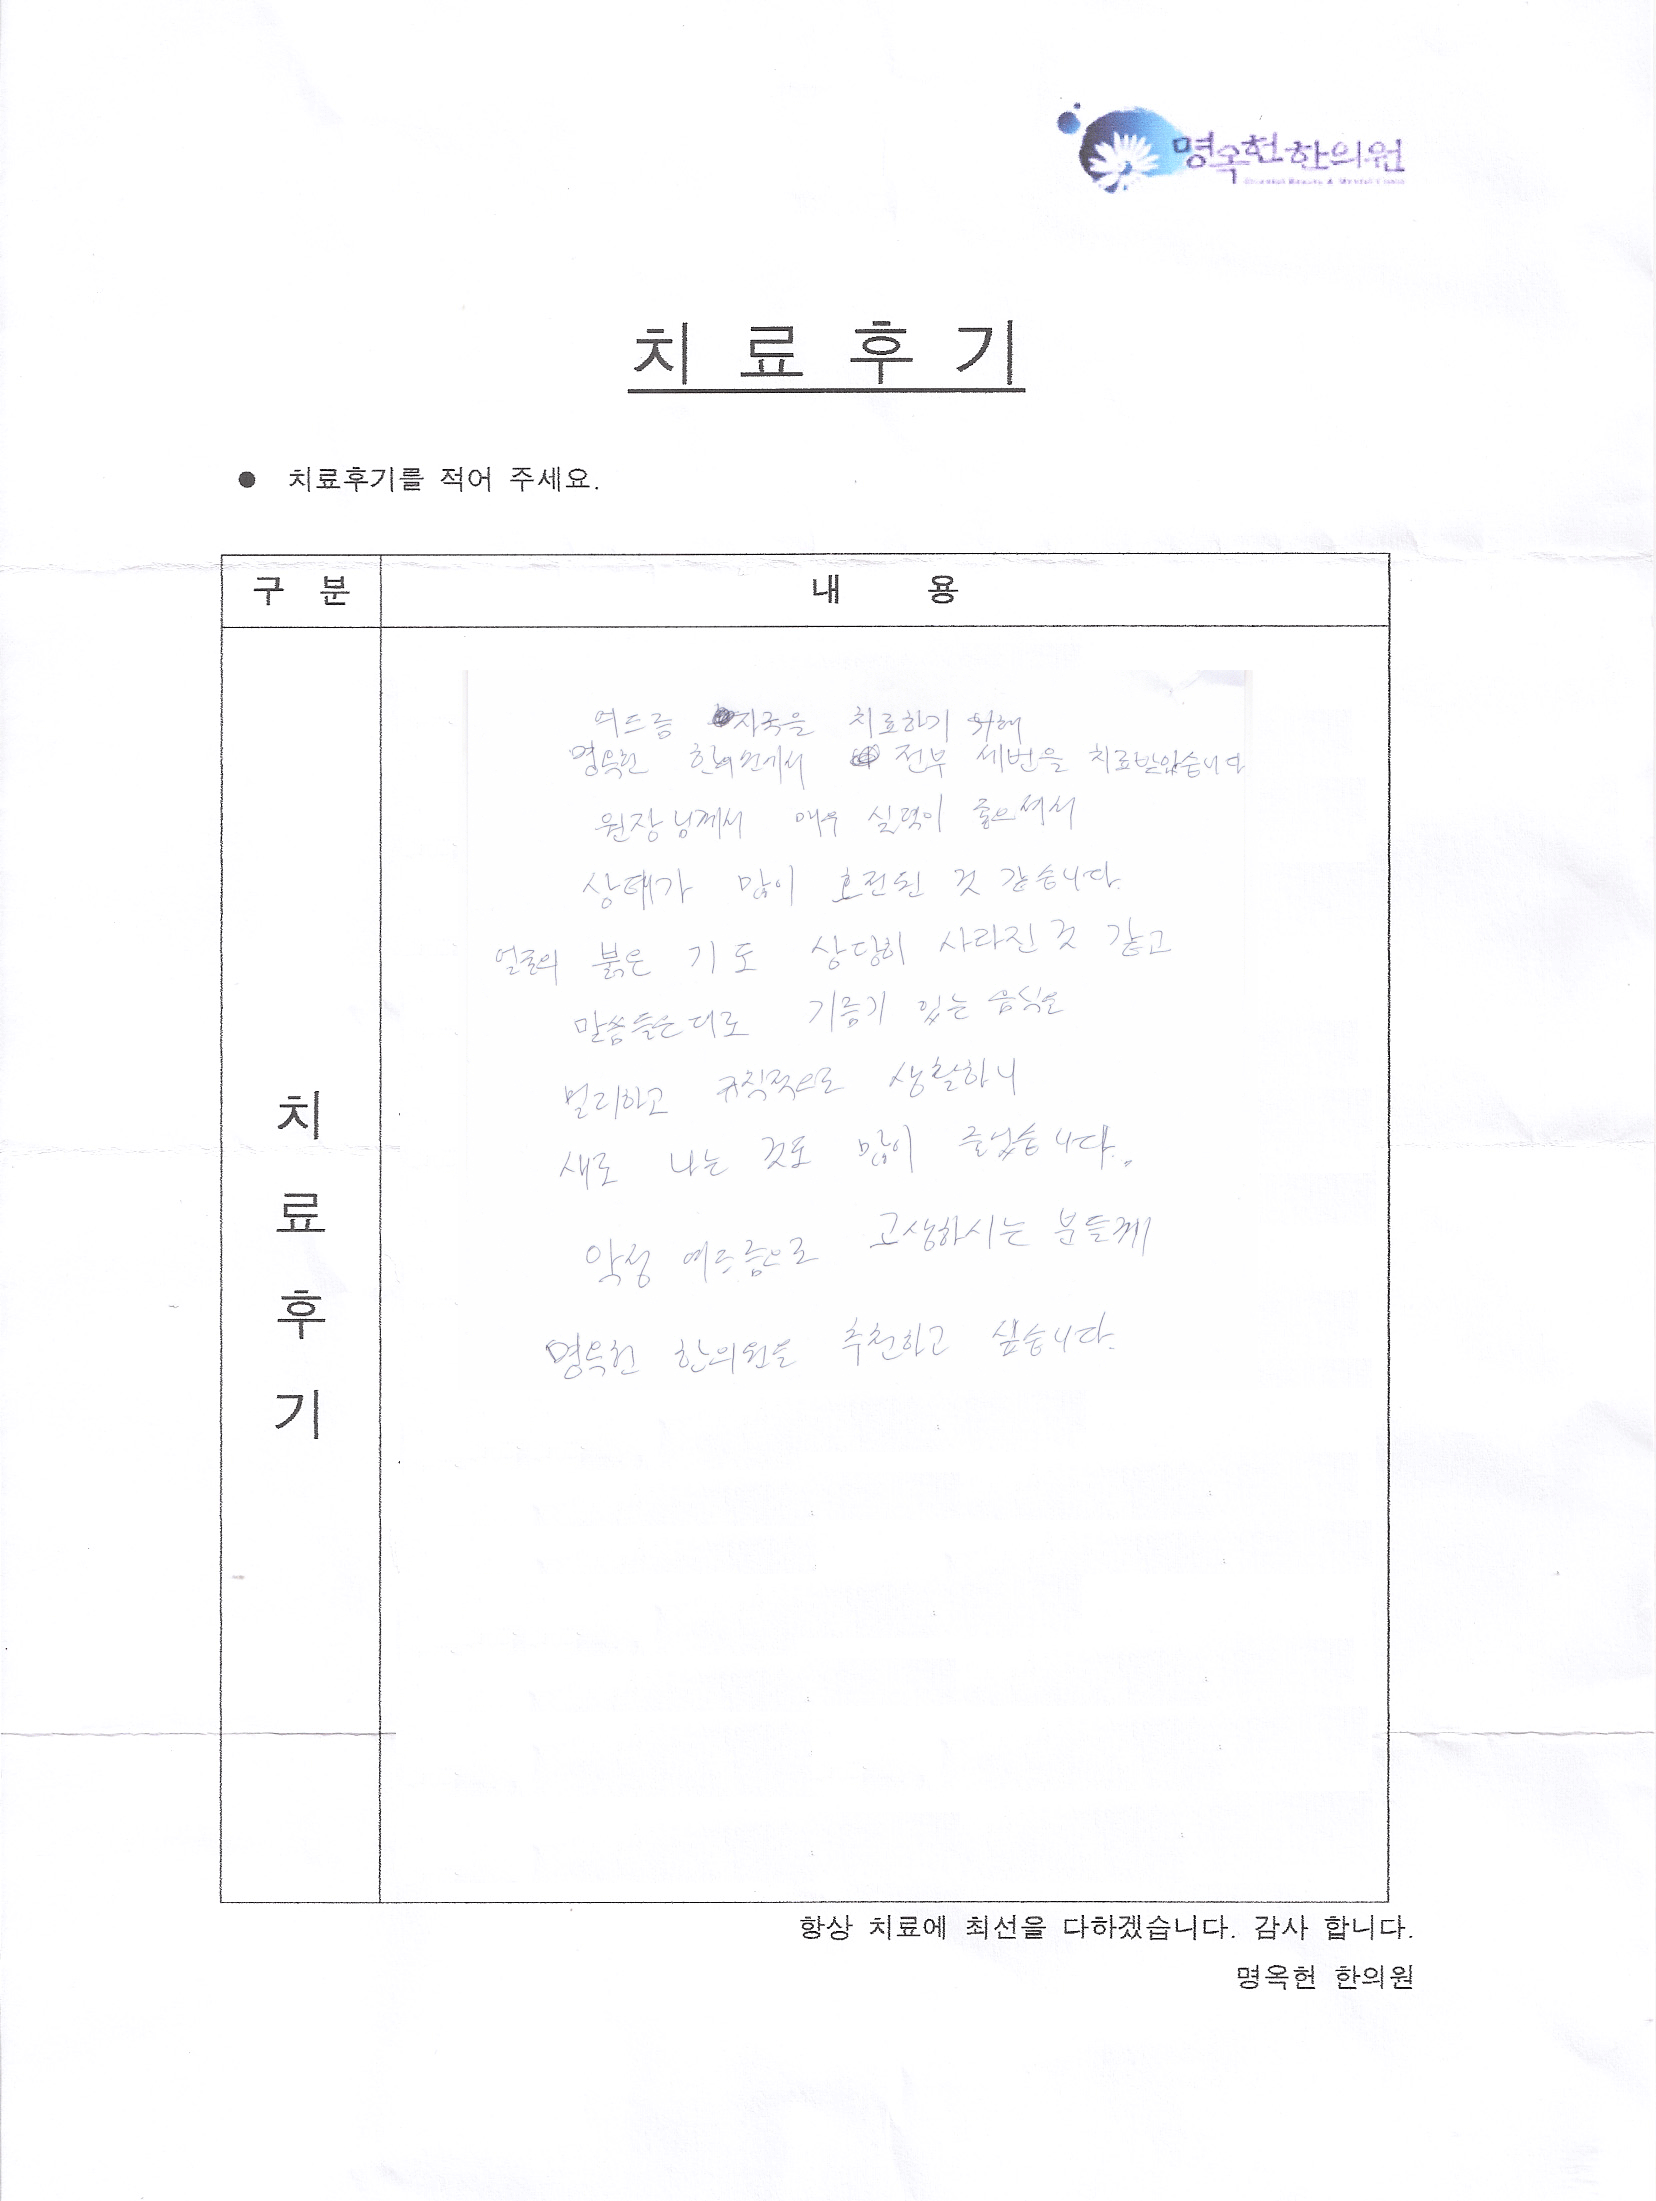 명옥헌한의원
치 료 후 기
● 치료후기를 적어 주세요.
구 분
내 용
치
료
후
기
여드름 자국을 치료하기 위해
명옥헌 한의원에서 전부 세번을 치료받았습니다
원장님께서 매우 실력이 좋으셔서
상태가 많이 호전된 것 같습니다.
얼굴의 붉은 기도 상당히 사라진 것 같고
말씀들은대로 기름기 있는 음식은
멀리하고 규칙적으로 생활하니
새로 나는 것도 많이 줄었습니다.
악성 여드름으로 고생하시는 분들께
명옥헌 한의원을 추천하고 싶습니다.
항상 치료에 최선을 다하겠습니다. 감사 합니다.
명옥헌 한의원